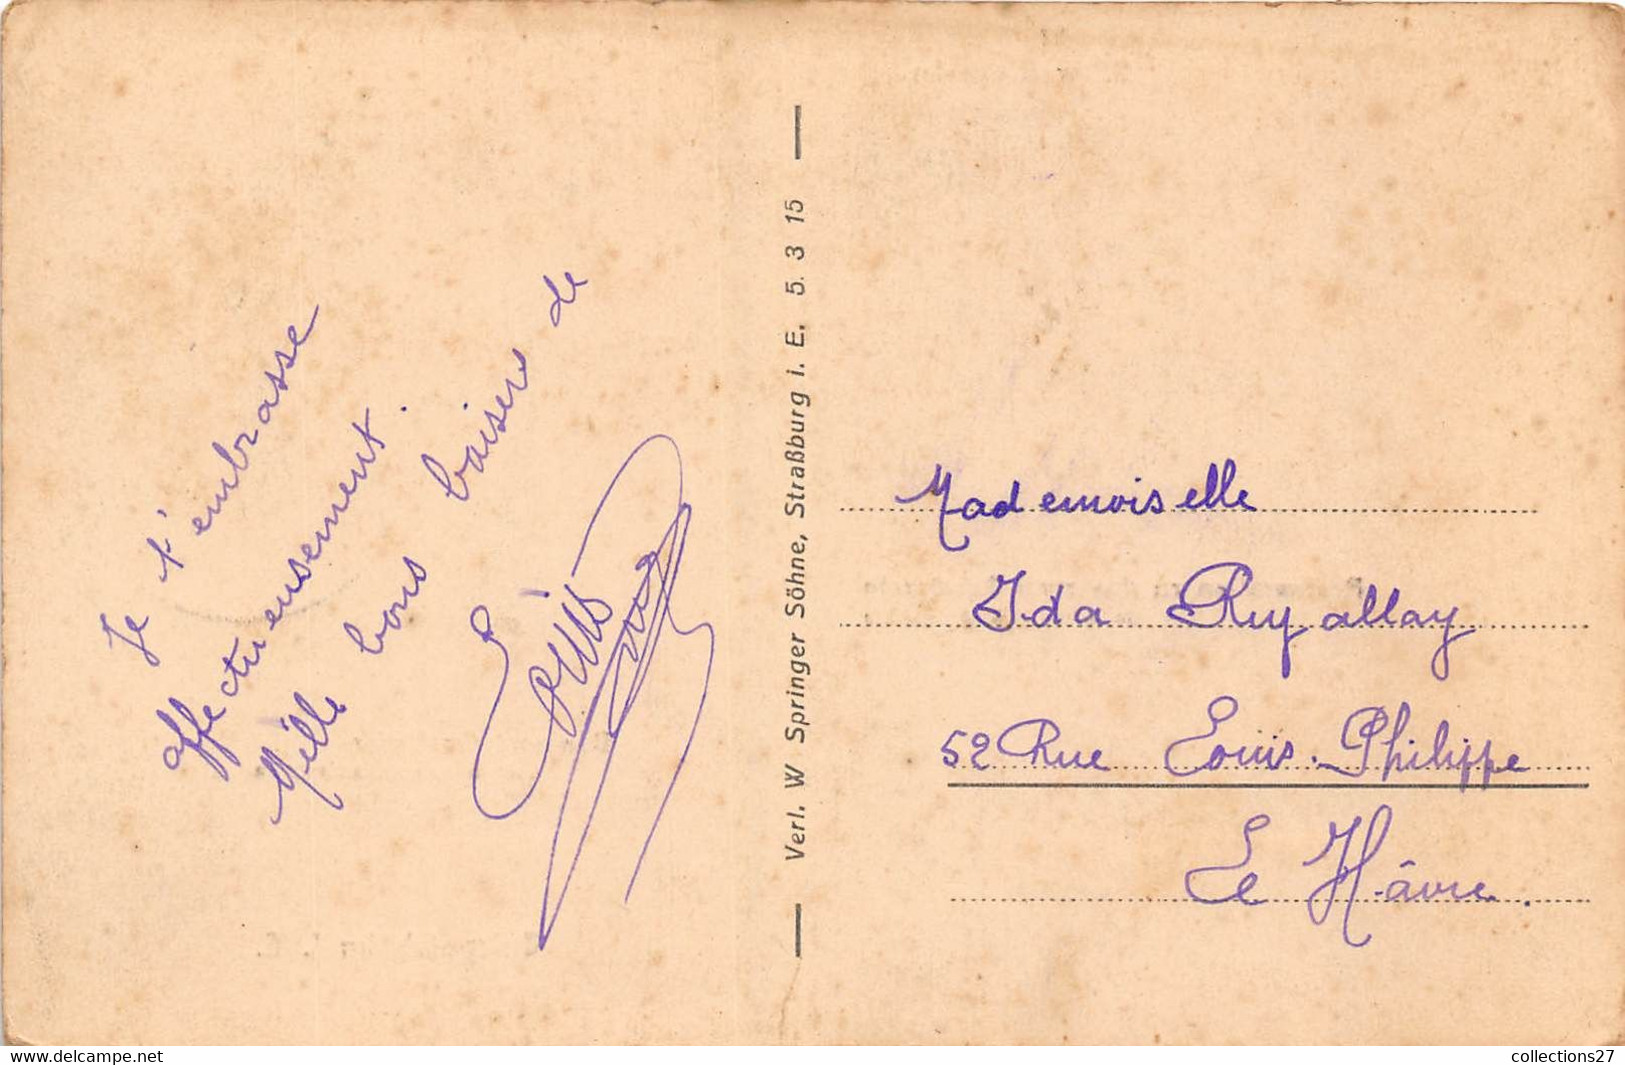 Je t'embrasse
affectueusement.
Mille bons baisers de
Louis
Verl. W Springer Söhne, Straßburg i. E. 5. 3 15
Mademoiselle
Ida Ruyallay
52 Rue Louis-Philippe
Le Hâvre.
www.delcampe.net
collections27